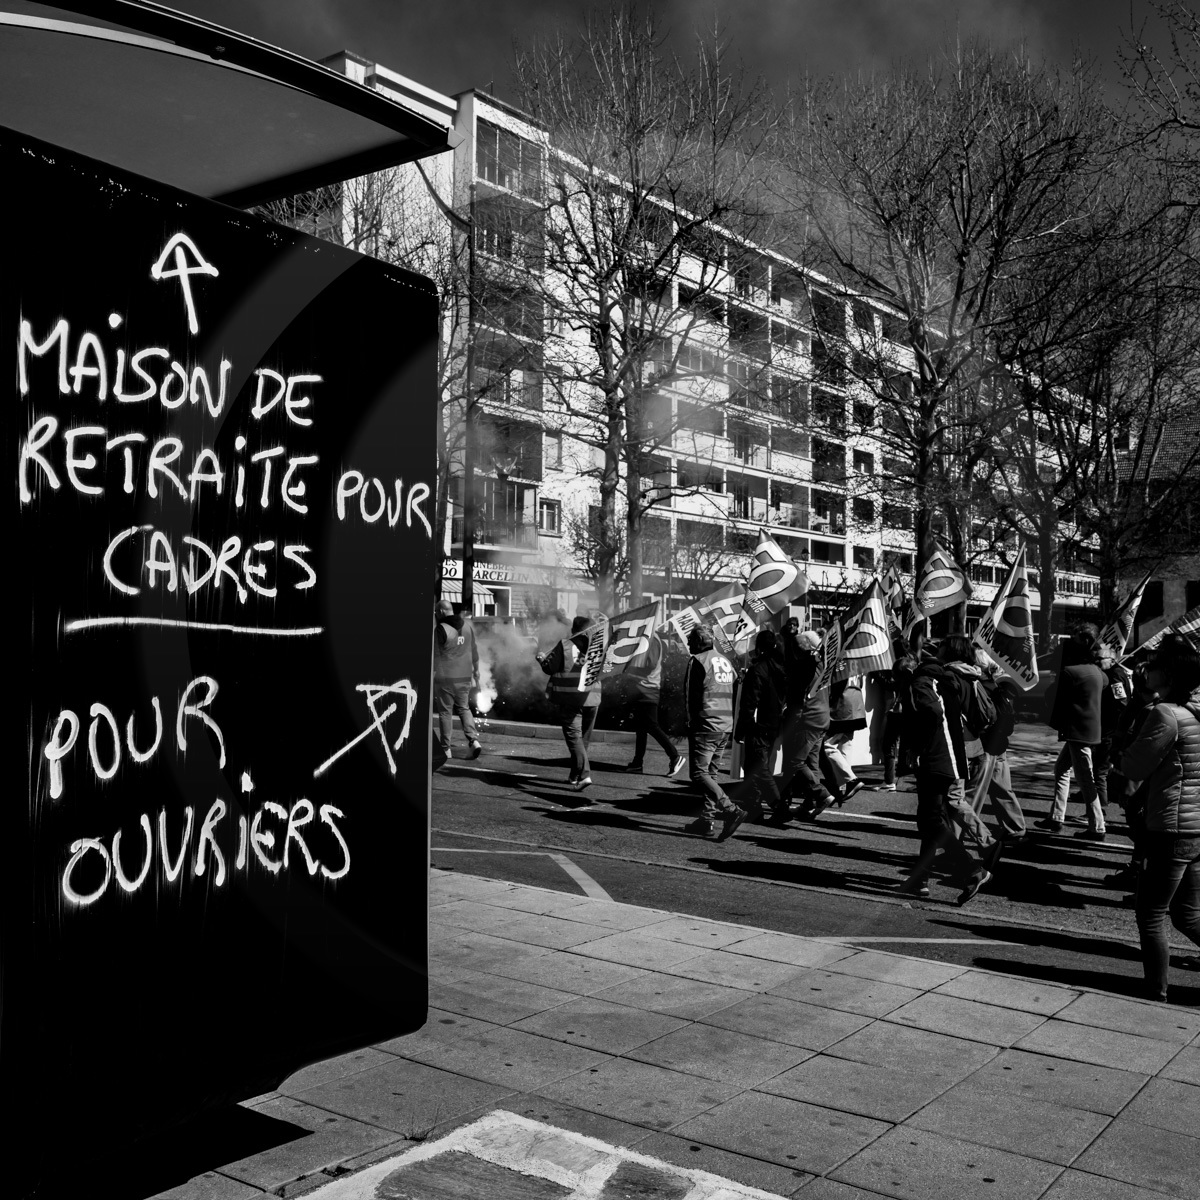 MAiSON DE
RETRAiTE POUR
CADRES
POUR
OUVRiERS
ARCELLIN
FO
FO
FO
FO
FO
FO
COM